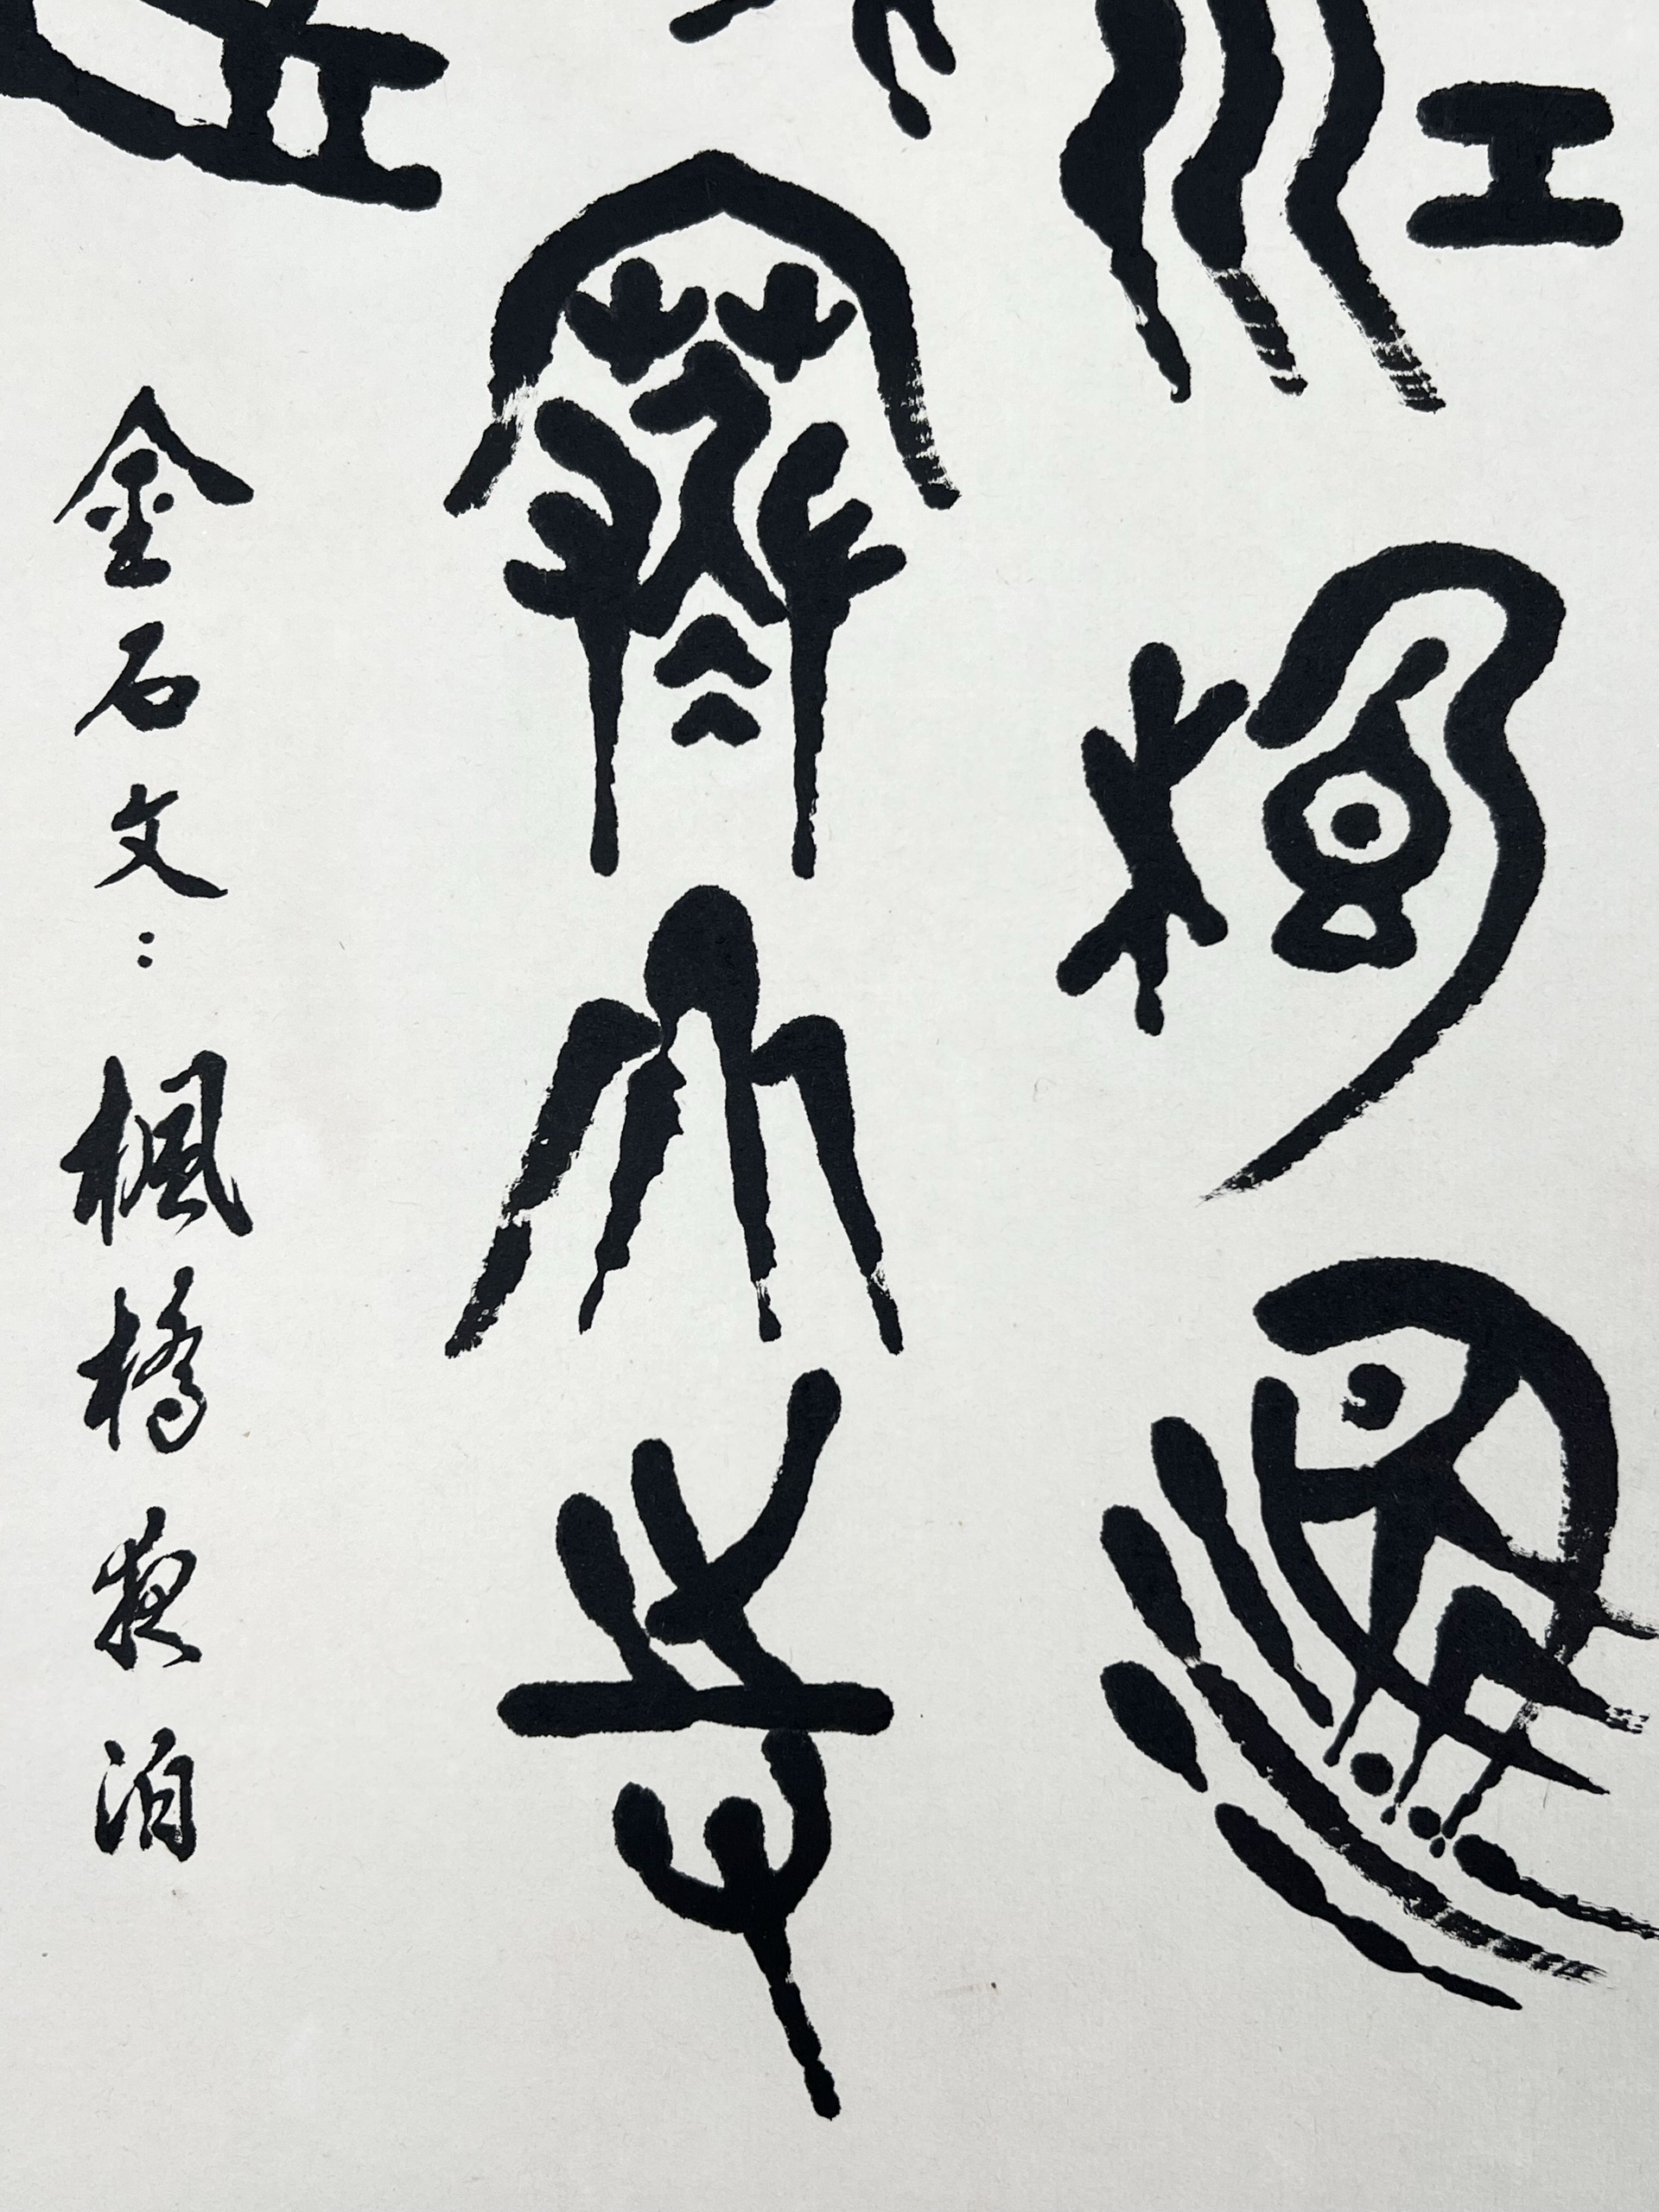 江楓漁
寒山寺
金石文：楓橋夜泊